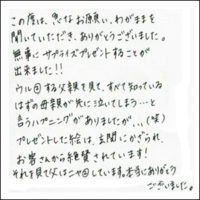 この度は、急なお願い、わがままを
聞いていただき、ありがとうございました。
無事にサプライズプレゼントすることが
出来ました!!
ウル回する父親を見て、すべて知っている
はずの母親が先に泣いてしまう…と
言うハプニングがありましたが…(笑)
プレゼントした絵は、玄関にかざられ、
お客さんから絶賛されています!
それを見て父はニヤ回しています。本当にありがとう
ございました。